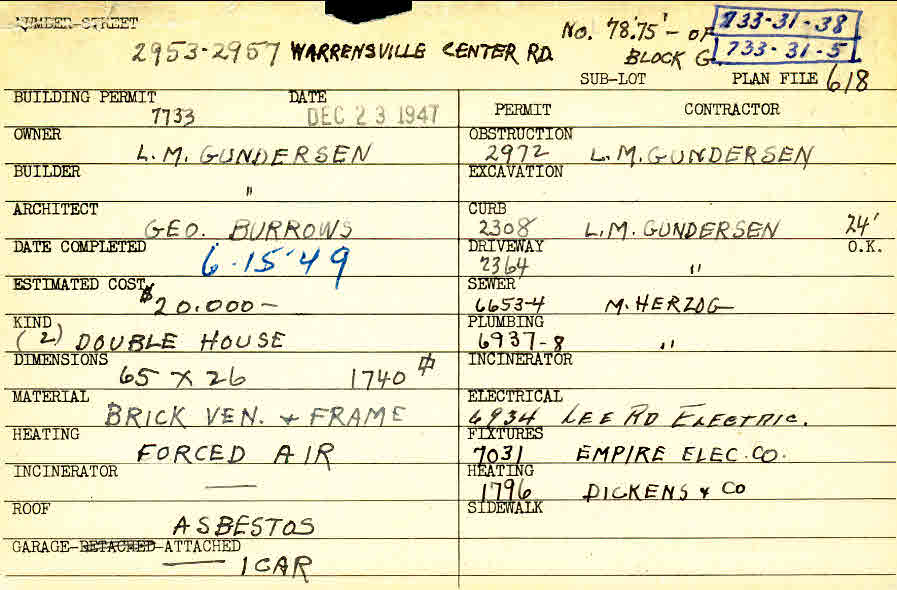 NUMBER-STREET
2953-2957 WARRENSVILLE CENTER RD.
No. 78.75'- OF
BLOCK G.
733-31-38
733-31-5
SUB-LOT PLAN FILE 618
BUILDING PERMIT DATE
7733 DEC 23 1947
OWNER
L.M. GUNDERSEN
BUILDER
"
ARCHITECT
GEO. BURROWS
DATE COMPLETED
6-15-49
ESTIMATED COST
$20.000-
KIND
(2) DOUBLE HOUSE
DIMENSIONS
65 X 26 1740
MATERIAL
BRICK VEN. + FRAME
HEATING
FORCED AIR
INCINERATOR
—
ROOF
ASBESTOS
GARAGE-DETACHED-ATTACHED
— 1 CAR
PERMIT CONTRACTOR
OBSTRUCTION
2972 L.M. GUNDERSEN
EXCAVATION
CURB
2308 L.M. GUNDERSEN 24'
DRIVEWAY O.K.
2364 "
SEWER
6653-4 M. HERZOG
PLUMBING
6937-8 "
INCINERATOR
ELECTRICAL
6934 LEE RD ELECTRIC.
FIXTURES
7031 EMPIRE ELEC. CO.
HEATING
1796 DICKENS + CO
SIDEWALK